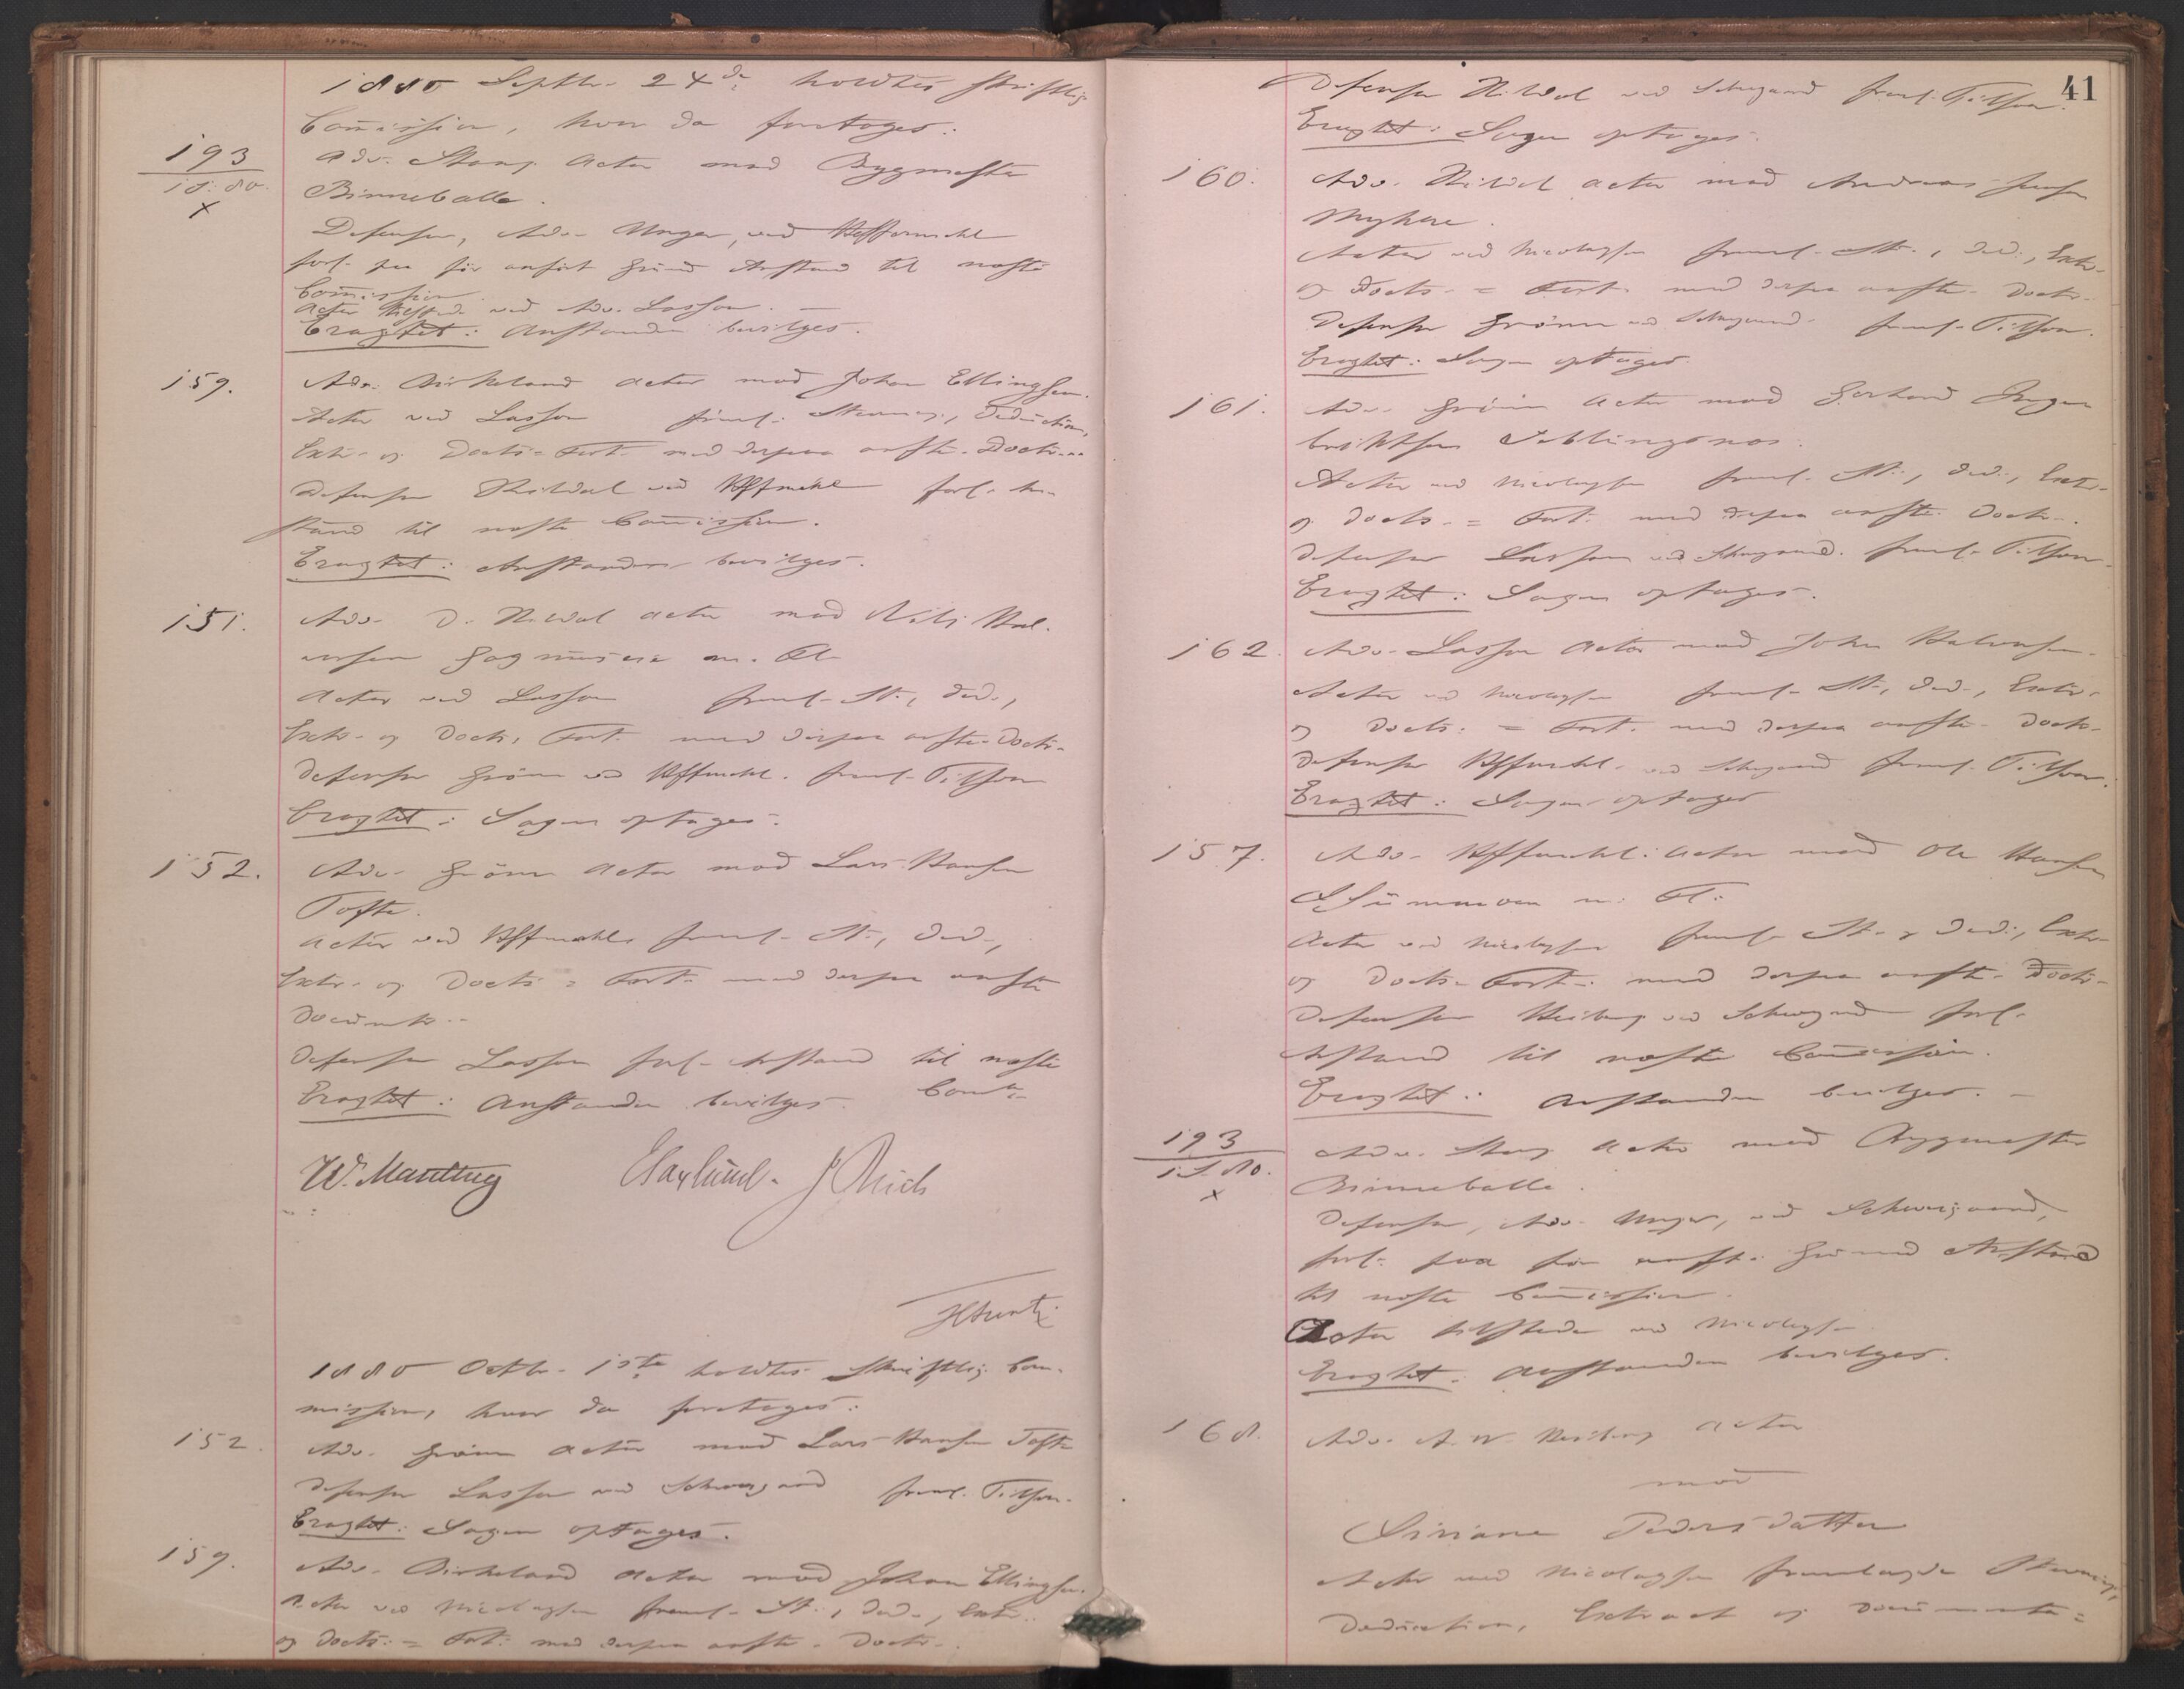 1880 Septbr. 24de holdtes skriftlig
Commission, hvor da foretoges:
193
18:80.
x
Adv. Stang Actor mod Bygmester
Binneballe.
Defensor, Adv. Unger, ved Heffermehl
forl. paa før anført Grund Anstand til næste
Commission
Actor tilstede ved Adv. Lasson.
Eragtet: Anstanden bevilges.
159.
Adv. Birkeland Actor mod Johan Ellingsen.
Actor ved Lasson freml. Stevning, Deduction,
Extr. og Docts = Fort. med derpaa anførte Docts.
Defensor Rivdal ved Heffermehl forl. An-
stand til næste Commission.
Eragtet: Anstanden bevilges.
151.
Adv. Actor mod Nils Hal-
vorsen m. Fl.
Actor ved Lasson freml. St., Ded.,
Extr. og Docts. Fort. med derpaa anførte Docts.
Defensor Grönn ved Heffermehl. freml. Tilsvar
Eragtet: Sagen optages.
152.
Adv. Grönn Actor mod Lars Hansen
Tofte.
Actor ved Heffermehl freml. St., Ded.,
Extr. og Docts = Fort. med derpaa anførte
Documts.
Defensor Lasson forl. Anstand til næste
Eragtet: Anstanden bevilges. Comn.
1880 Octbr. 1ste holdtes skriftlig Com-
mission, hvor da foretoges:
152.
Adv. Grönn Actor mod Lars Hansen Tofte
Defensor Lasson ved Schweigaard freml. Tilsvar.
Eragtet: Sagen optages.
159.
Adv. Birkeland Actor mod Johan Ellingsen.
Actor ved Nicolaysen freml. St., Ded., Extr.
og Docts. = Fort. med derpaa anførte Docts.
41
Defensor ved Schweigaard freml. Tilsvar.
Eragtet: Sagen optages.
160.
Adv. Actor mod Andreas Jensen
Myhere.
Actor ved Nicolaysen freml. St., Ded., Extr.
og Docts. = Fort. med derpaa anførte Docts.
Defensor Grönn ved Schweigaard. freml. Tilsvar.
Eragtet: Sagen optages
161.
Adv. Grönn Actor mod Gerhard
Actor ved Nicolaysen freml. St., Ded., Extr.
og Docts. = Fort. med derpaa anførte Docts.
Defensor Lasson ved Schweigaard. freml. Tilsvar.
Eragtet: Sagen optages.
162.
Adv. Lasson Actor mod John Halvorsen.
Actor ved Nicolaysen freml. St., Ded., Extr.
og Docts. = Fort. med derpaa anførte Docts.
Defensor Heffermehl. ved Schweigaard freml. Tilsvar.
Eragtet: Sagen optages
157.
Adv. Heffermehl. Actor mod Ole Hansen
m. Fl.
Actor ved Nicolaysen freml. St., Ded., Extr.
og Docts. Fort. med derpaa anførte Docts.
Defensor Heiberg ved Schweigaard forl.
Anstand til næste Commission.
Eragtet: Anstanden bevilges.
193
18.80.
x
Adv. Stang Actor mod Bygmester
Binneballe.
Defensor, Adv. Unger, ved Schweigaard,
forl. paa før anført Grund Anstand
til næste Commission.
Actor tilstede ved Nicolaysen
Eragtet: Anstanden bevilges.
168.
Adv. A. W. Heiberg Actor
mod
Siviane Pedersdatter
Actor ved Nicolaysen fremlagde Stevning,
Deduction, Extract og Documenta=